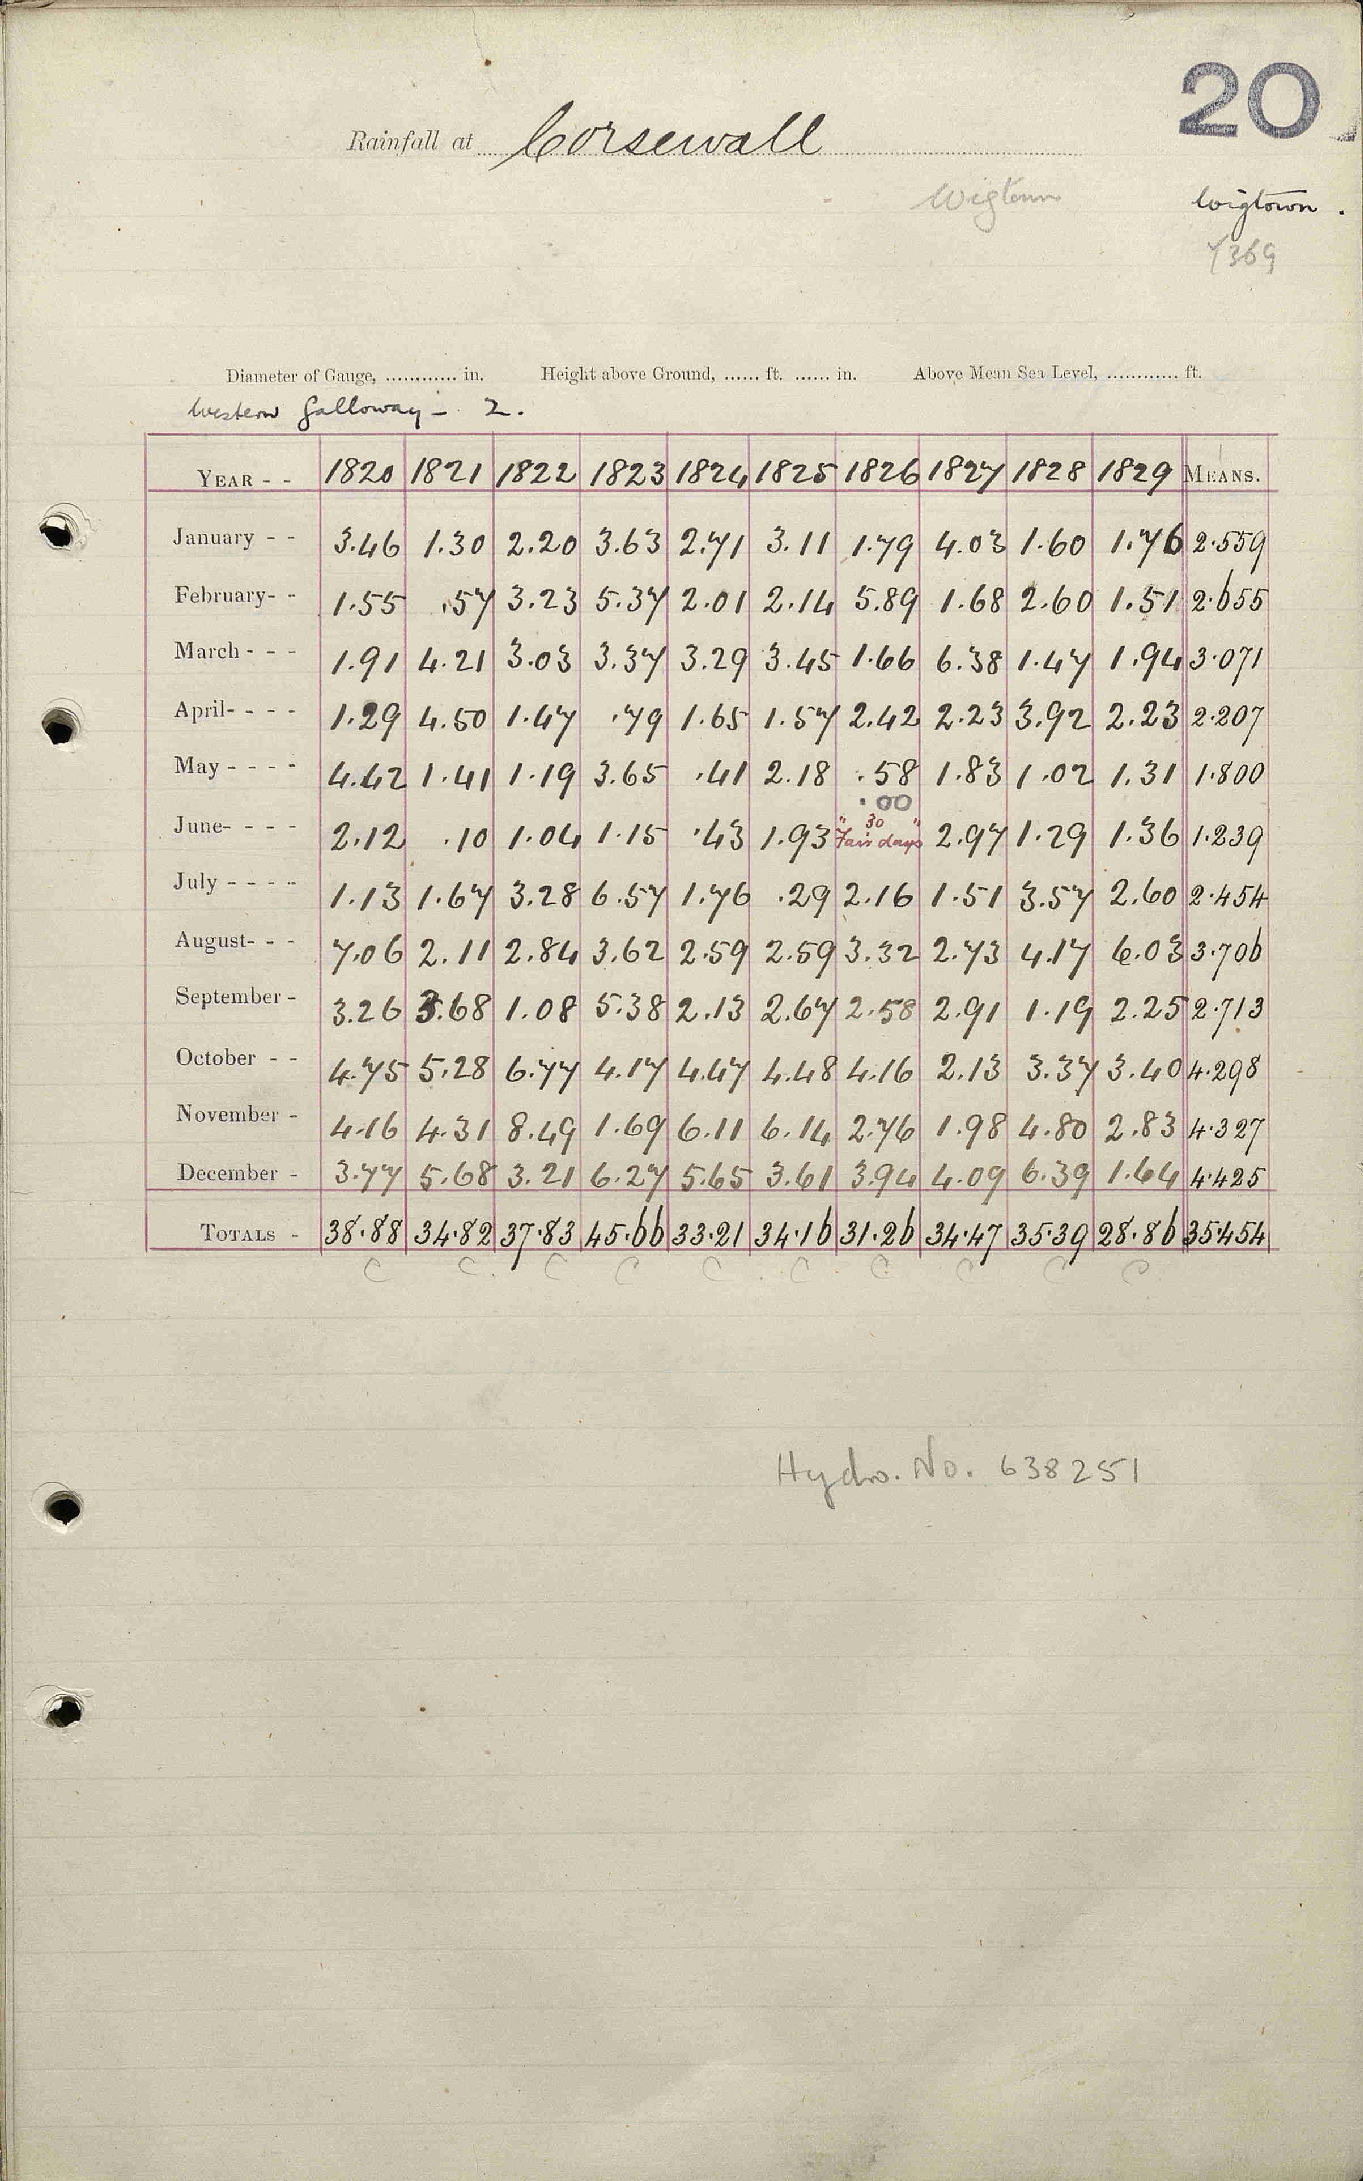 20
Rainfall at Corsewall
Wigtown Wigtown.
7369
Diameter of Gauge, ............ in. Height above Ground, ...... ft. ...... in. Above Mean Sea Level, ............ ft.
Western Galloway - 2.
YEAR - - 1820 1821 1822 1823 1824 1825 1826 1827 1828 1829 MEANS.
January - - 3.46 1.30 2.20 3.63 2.71 3.11 1.79 4.03 1.60 1.76 2.559
February- - 1.55 .57 3.23 5.37 2.01 2.14 5.89 1.68 2.60 1.51 2.655
March - - - 1.91 4.21 3.03 3.37 3.29 3.45 1.66 6.38 1.47 1.94 3.071
April- - - - 1.29 4.50 1.47 .79 1.65 1.57 2.42 2.23 3.92 2.23 2.207
May - - - - 4.42 1.41 1.19 3.65 .41 2.18 .58 1.83 1.02 1.31 1.800
.00
" 30 "
June- - - - 2.12 .10 1.04 1.15 .43 1.93 Fair days 2.97 1.29 1.36 1.239
July - - - - 1.13 1.67 3.28 6.57 1.76 .29 2.16 1.51 3.57 2.60 2.454
August- - - 7.06 2.11 2.84 3.62 2.59 2.59 3.32 2.73 4.17 6.03 3.706
September - 3.26 3.68 1.08 5.38 2.13 2.67 2.58 2.91 1.19 2.25 2.713
October - - 4.75 5.28 6.77 4.17 4.47 4.48 4.16 2.13 3.37 3.40 4.298
November - 4.16 4.31 8.49 1.69 6.11 6.14 2.76 1.98 4.80 2.83 4.327
December - 3.77 5.68 3.21 6.27 5.65 3.61 3.94 4.09 6.39 1.64 4.425
TOTALS - 38.88 34.82 37.83 45.66 33.21 34.16 31.26 34.47 35.39 28.86 35.454
C C C C C C C C C C
Hydro. No. 638251